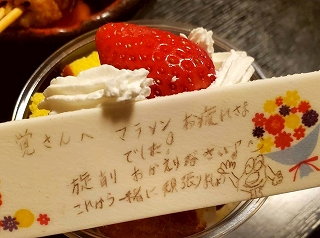 覚さんへ マラソン お疲れさま
でした♪
旋削 おかえりなさい♪
これからも一緒に頑張りましょう